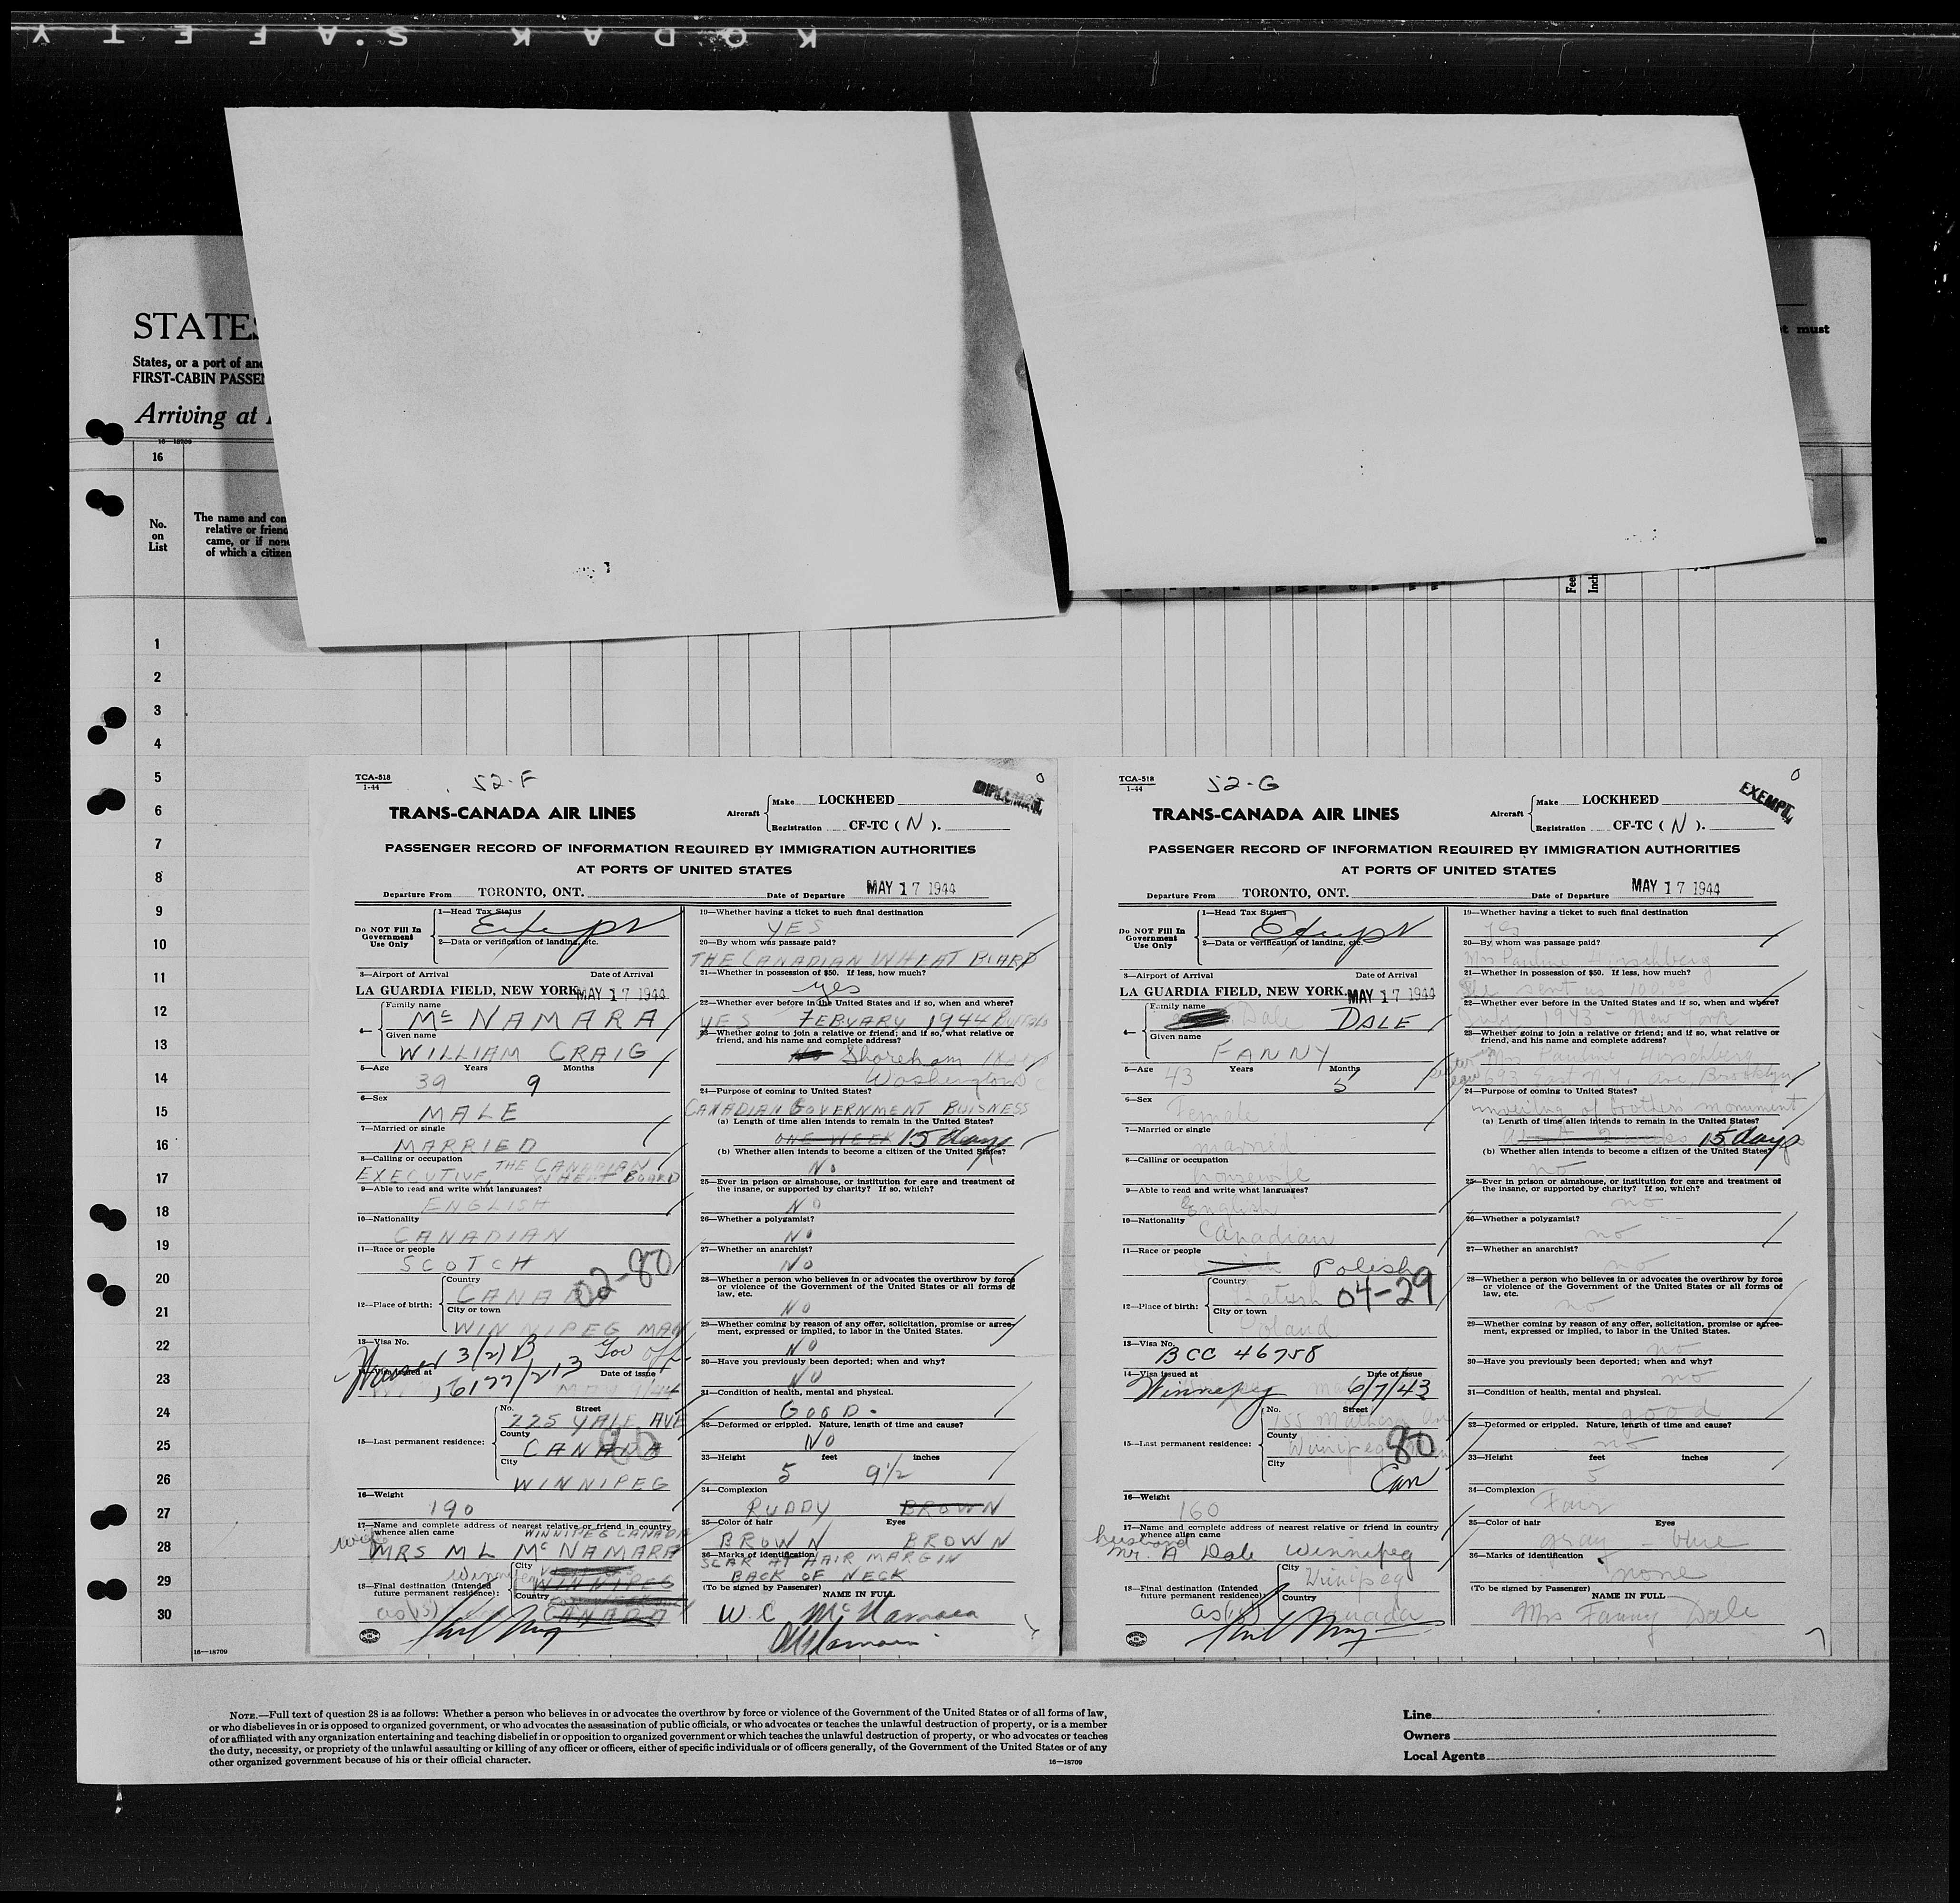 KODAK SAFETY
STATES
States, or a port of
FIRST-CABIN
Arriving at
must
16—18709
16
No.
on
List
The name and
relative or friend
came, or if none
of which a citizen
1
2
3
4
5
6
7
8
9
10
11
12
13
14
15
16
17
18
19
20
21
22
23
24
25
26
27
28
29
30
16—18709
TCA-518
1-44
52-F
TRANS-CANADA AIR LINES
Aircraft
Make LOCKHEED
Registration CF-TC ( N ).
PASSENGER RECORD OF INFORMATION REQUIRED BY IMMIGRATION AUTHORITIES
AT PORTS OF UNITED STATES
Departure From TORONTO, ONT. Date of Departure MAY 17 1944
Do NOT Fill In
Government
Use Only
1—Head Tax Status
Exempt
2—Data or verification of landing, etc.
3—Airport of Arrival Date of Arrival
LA GUARDIA FIELD, NEW YORK MAY 17 1944
4— Family name
Mc NAMARA
Given name
WILLIAM CRAIG
5—Age Years Months
39 9
6—Sex
MALE
7—Married or single
MARRIED
8—Calling or occupation
EXECUTIVE, THE CANADIAN WHEAT BOARD
9—Able to read and write what languages?
ENGLISH
10—Nationality
CANADIAN
11—Race or people
SCOTCH
02-80
12—Place of birth:
Country
CANADA
City or town
WINNIPEG MAN
13—Visa No.
3/2) B Gov off.
14—Visa issued at Date of issue
16177/213
15—Last permanent residence:
No. Street
225 YALE AVE
County
CANADA
80
City
WINNIPEG
16—Weight
190
17—Name and complete address of nearest relative or friend in country
whence alien came WINNIPEG CANADA
wife
MRS M L McNAMARA
18—Final destination (Intended
future permanent residence):
City
WINNIPEG
Country
CANADA
as (15)
19—Whether having a ticket to such final destination
YES
20—By whom was passage paid?
THE CANADIAN WHEAT BOARD
21—Whether in possession of $50. If less, how much?
yes
22—Whether ever before in the United States and if so, when and where?
YES FEBUARY 1944 BUFFALO
23—Whether going to join a relative or friend; and if so, what relative or
friend, and his name and complete address?
No Shoreham
Washington D C
24—Purpose of coming to United States?
CANADIAN GOVERNMENT BUISNESS
(a) Length of time alien intends to remain in the United States?
ONE WEEK 15 days
(b) Whether alien intends to become a citizen of the United States?
No
25—Ever in prison or almshouse, or institution for care and treatment of
the insane, or supported by charity? If so, which?
NO
26—Whether a polygamist?
NO
27—Whether an anarchist?
NO
28—Whether a person who believes in or advocates the overthrow by force
or violence of the Government of the United States or all forms of
law, etc.
NO
29—Whether coming by reason of any offer, solicitation, promise or agree-
ment, expressed or implied, to labor in the United States.
NO
30—Have you previously been deported; when and why?
NO
31—Condition of health, mental and physical.
GOOD.
32—Deformed or crippled. Nature, length of time and cause?
NO
33—Height feet inches
5 9½
34—Complexion
RUDDY BROWN
35—Color of hair Eyes
BROWN BROWN
36—Marks of identification
SCAR AT HAIR MARGIN
BACK OF NECK
(To be signed by Passenger)
NAME IN FULL
W. C McNamara
TCA-518
1-44
52-G
EXEMPT
TRANS-CANADA AIR LINES
Aircraft
Make LOCKHEED
Registration CF-TC ( N ).
PASSENGER RECORD OF INFORMATION REQUIRED BY IMMIGRATION AUTHORITIES
AT PORTS OF UNITED STATES
Departure From TORONTO, ONT. Date of Departure MAY 17 1944
Do NOT Fill In
Government
Use Only
1—Head Tax Status
Exempt
2—Data or verification of landing, etc.
3—Airport of Arrival Date of Arrival
LA GUARDIA FIELD, NEW YORK. MAY 17 1944
4— Family name
Dale DALE
Given name
FANNY
5—Age Years Months
43 5
6—Sex
Female
7—Married or single
married
8—Calling or occupation
housewife
9—Able to read and write what languages?
English
10—Nationality
Canadian
11—Race or people
Polish
12—Place of birth:
Country
04-29
City or town
Poland
13—Visa No.
BCC 46758
14—Visa issued at Date of Issue
Winnipeg 6/7/43
15—Last permanent residence:
No. Street
155 Matheson Ave
County
Winnipeg
80
City
Can
16—Weight
160
17—Name and complete address of nearest relative or friend in country
whence alien came
husband
Mr. A Dale Winnipeg
18—Final destination (Intended
future permanent residence):
City
Winnipeg
Country
Canada
as (15)
19—Whether having a ticket to such final destination
yes
20—By whom was passage paid?
Mrs Pauline Hirschberg
21—Whether in possession of $50. If less, how much?
sent us 100.00
22—Whether ever before in the United States and if so, when and where?
July 1943 - New York
23—Whether going to join a relative or friend; and if so, what relative or
friend, and his name and complete address?
sister in law Mrs Pauline Hirschberg
693 East N.Y. Ave, Brooklyn
24—Purpose of coming to United States?
unveiling of brothers monument
(a) Length of time alien intends to remain in the United States?
2 weeks 15 days
(b) Whether alien intends to become a citizen of the United States?
no
25—Ever in prison or almshouse, or institution for care and treatment of
the insane, or supported by charity? If so, which?
no
26—Whether a polygamist?
no
27—Whether an anarchist?
no
28—Whether a person who believes in or advocates the overthrow by force
or violence of the Government of the United States or all forms of
law, etc.
no
29—Whether coming by reason of any offer, solicitation, promise or agree-
ment, expressed or implied, to labor in the United States.
no
30—Have you previously been deported; when and why?
no
31—Condition of health, mental and physical.
good
32—Deformed or crippled. Nature, length of time and cause?
no
33—Height feet inches
5
34—Complexion
Fair
35—Color of hair Eyes
gray - blue
36—Marks of identification
none
(To be signed by Passenger)
NAME IN FULL
Mrs Fanny Dale
NOTE.—Full text of question 28 is as follows: Whether a person who believes in or advocates the overthrow by force or violence of the Government of the United States or of all forms of law,
or who disbelieves in or is opposed to organized government, or who advocates the assassination of public officials, or who advocates or teaches the unlawful destruction of property, or is a member
of or affiliated with any organization entertaining and teaching disbelief in or opposition to organized government or which teaches the unlawful destruction of property, or who advocates or teaches
the duty, necessity, or propriety of the unlawful assaulting or killing of any officer or officers, either of specific individuals or of officers generally, of the Government of the United States or of any
other organized government because of his or their official character.
16—18709
Line
Owners
Local Agents